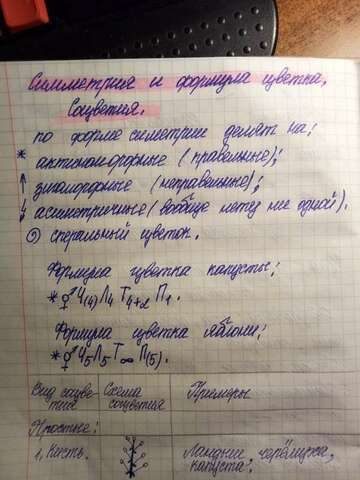 Симметрия и формула цветка.
Соцветия.
по форме симетрии делят на:
* актиноморфные (правельные);
↑ зигаморфные (неправельные);
асиметричные (вообще нету ни одной).
спиральный цветок.
Формула цветка капусты:
*⚥Ч(4)Л4 Т4+2 П1.
Формула цветка яблони:
*⚥Ч5Л5Т∞ П(5).
Вид соцве- Схема Примеры
тия соцветия
Простые:
1, Кисть. Ландыш, черёмуха,
капуста.